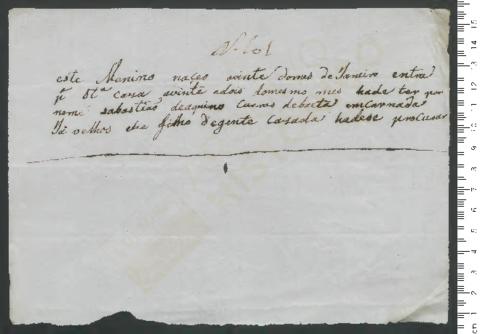 este Menino naçeo vinte domes de Janeiro entra
pª Stª Casa vinte edois domesmo mes hade ter por
nome sabastião deaquino Cueros debaeta emcarnada
Já velhos e he filho degente Casada hadese procurar